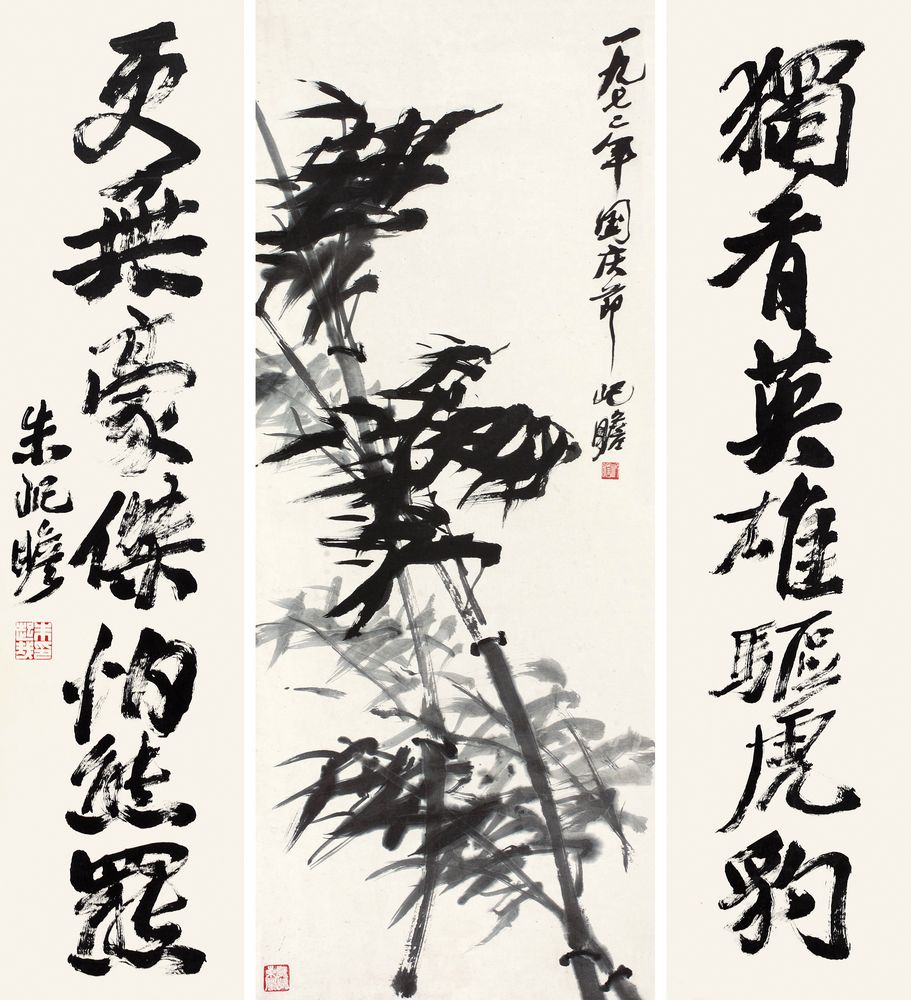 獨有英雄驅虎豹
一九七二年國庆节 屺瞻
更無豪傑怕熊羆
朱屺瞻